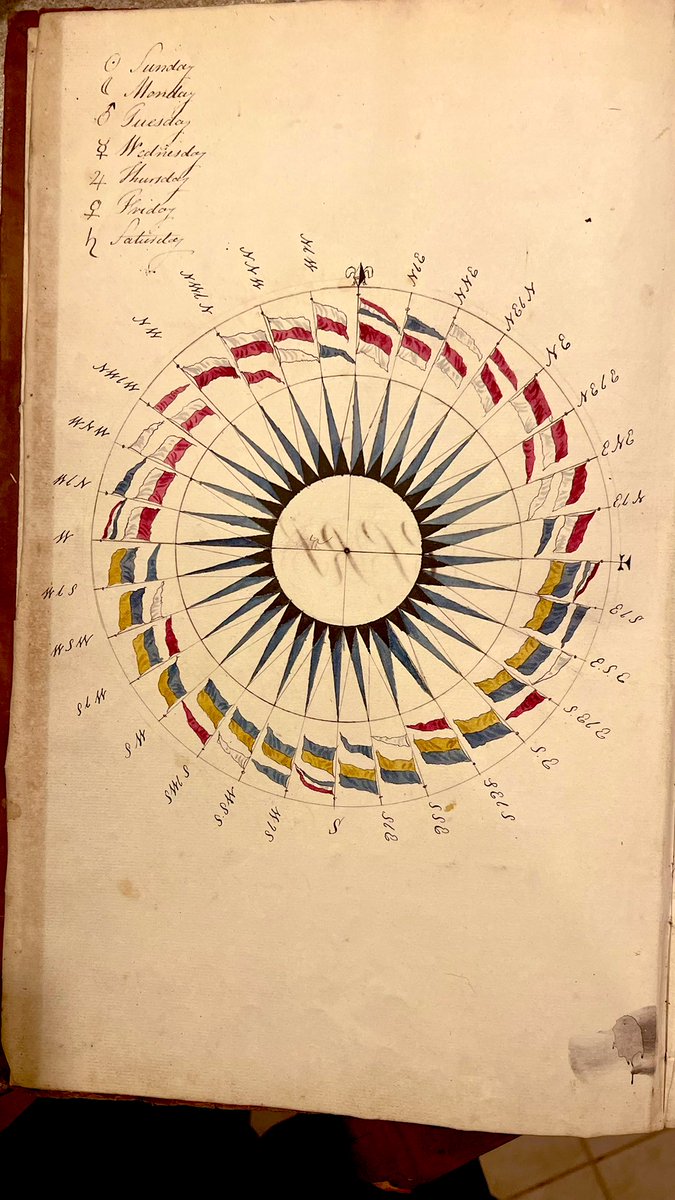 ☉ Sunday
☾ Monday
♂ Tuesday
☿ Wednesday
♃ Thursday
♀ Friday
♄ Saturday
NbE
NNE
NEbN
NE
NEbE
ENE
EbN
EbS
ESE
SEbE
SE
SEbS
SSE
SbE
S
SbW
SSW
SWbS
SW
WSW
WbS
W
WbN
WNW
NWbW
NW
NWbN
NNW
NbW